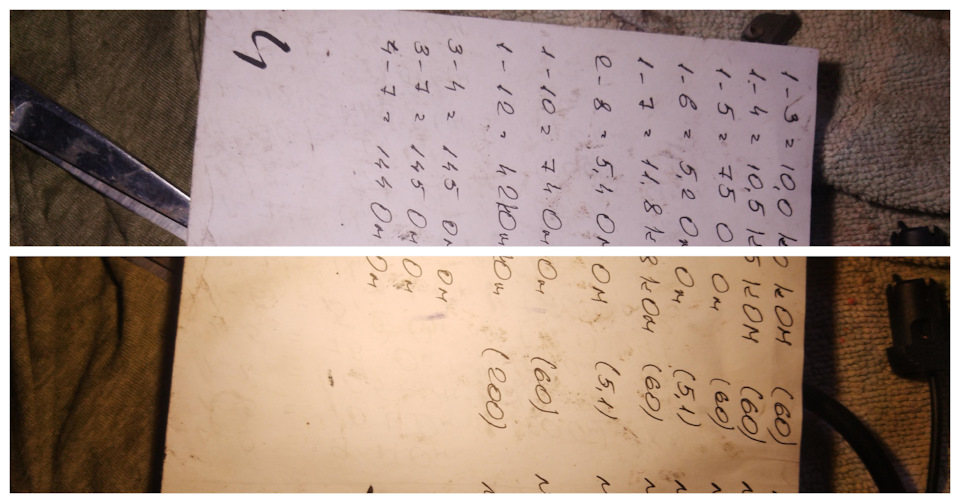 1-3 = 10,0 kОм (60)
1-4 = 10,5 kОм (60)
1-5 = 75 Ом (60)
1-6 = 5,2 Ом (5,1)
1-7 = 11,8 kОм (60)
2-8 = 5,4 Ом (5,1)
1-10 = 74 Ом (60)
1-12 = (200)
3-4 = 145 Ом
3-7 = 145 Ом
4-7 = 144 Ом
4